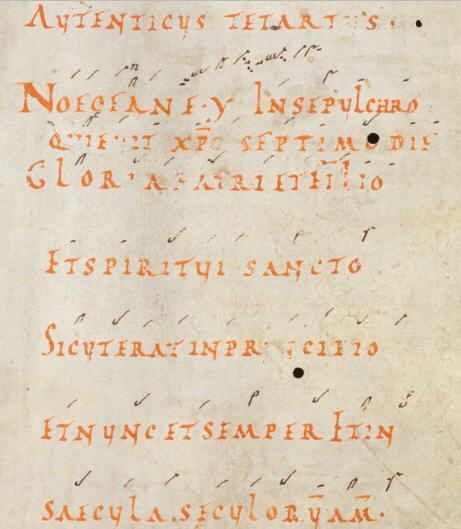 AUTENTICUS TETARTUS.
NOEOEANE·Y INSEPULCHRO
QUIEUIT XP̄C SEPTIMO DIE
GLORIA PATRI ET FILIO
ETSPIRITUI SANCTO
SICUTERAT INPRINCIPIO
ETNUNC ETSEMPER ETIN
SAECULA. SECULORŪAM̄.